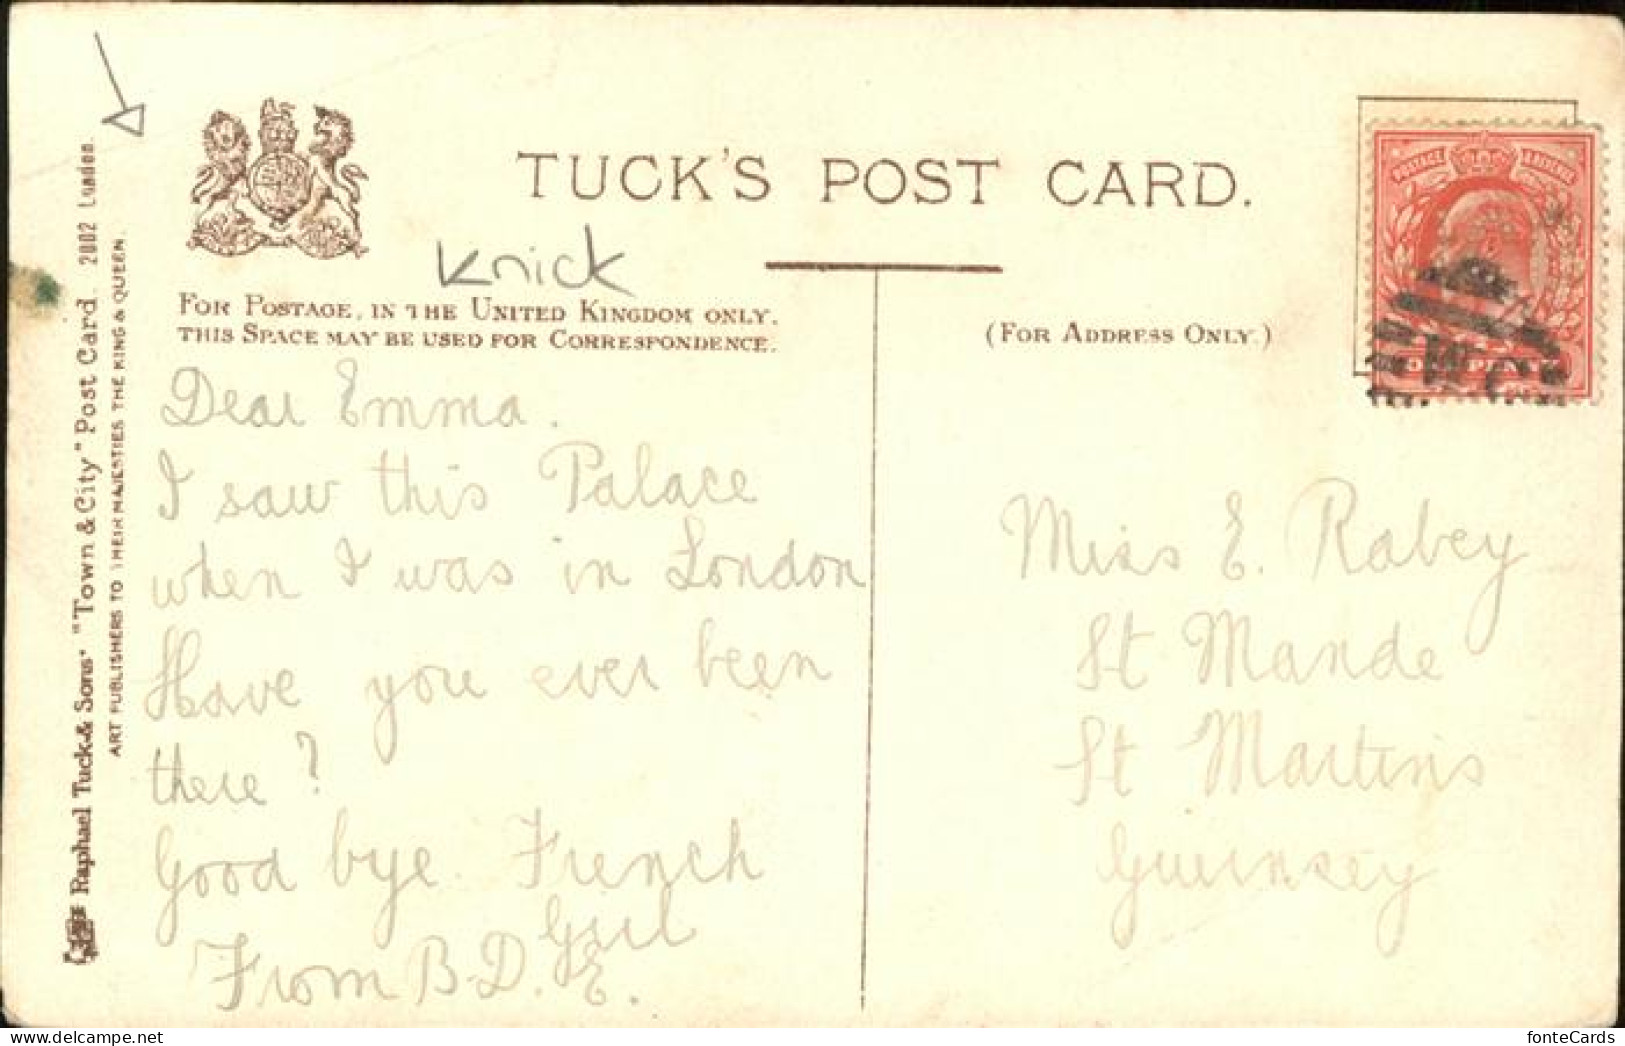 TUCK'S POST CARD.
Knick
FOR POSTAGE, IN THE UNITED KINGDOM ONLY.
THIS SPACE MAY BE USED FOR CORRESPONDENCE.
(FOR ADDRESS ONLY.)
Dear Emma.
I saw this Palace
when I was in London
Have you ever been
there?
Good bye. French
Girl
From B.D. E.
POSTAGE REVENUE
ONE PENNY
Miss E. Rabey
St Mande
St Martins
Guernsey
Raphael Tuck & Sons' "Town & City" Post Card 2002 London.
ART PUBLISHERS TO THEIR MAJESTIES THE KING & QUEEN.
fonteCards